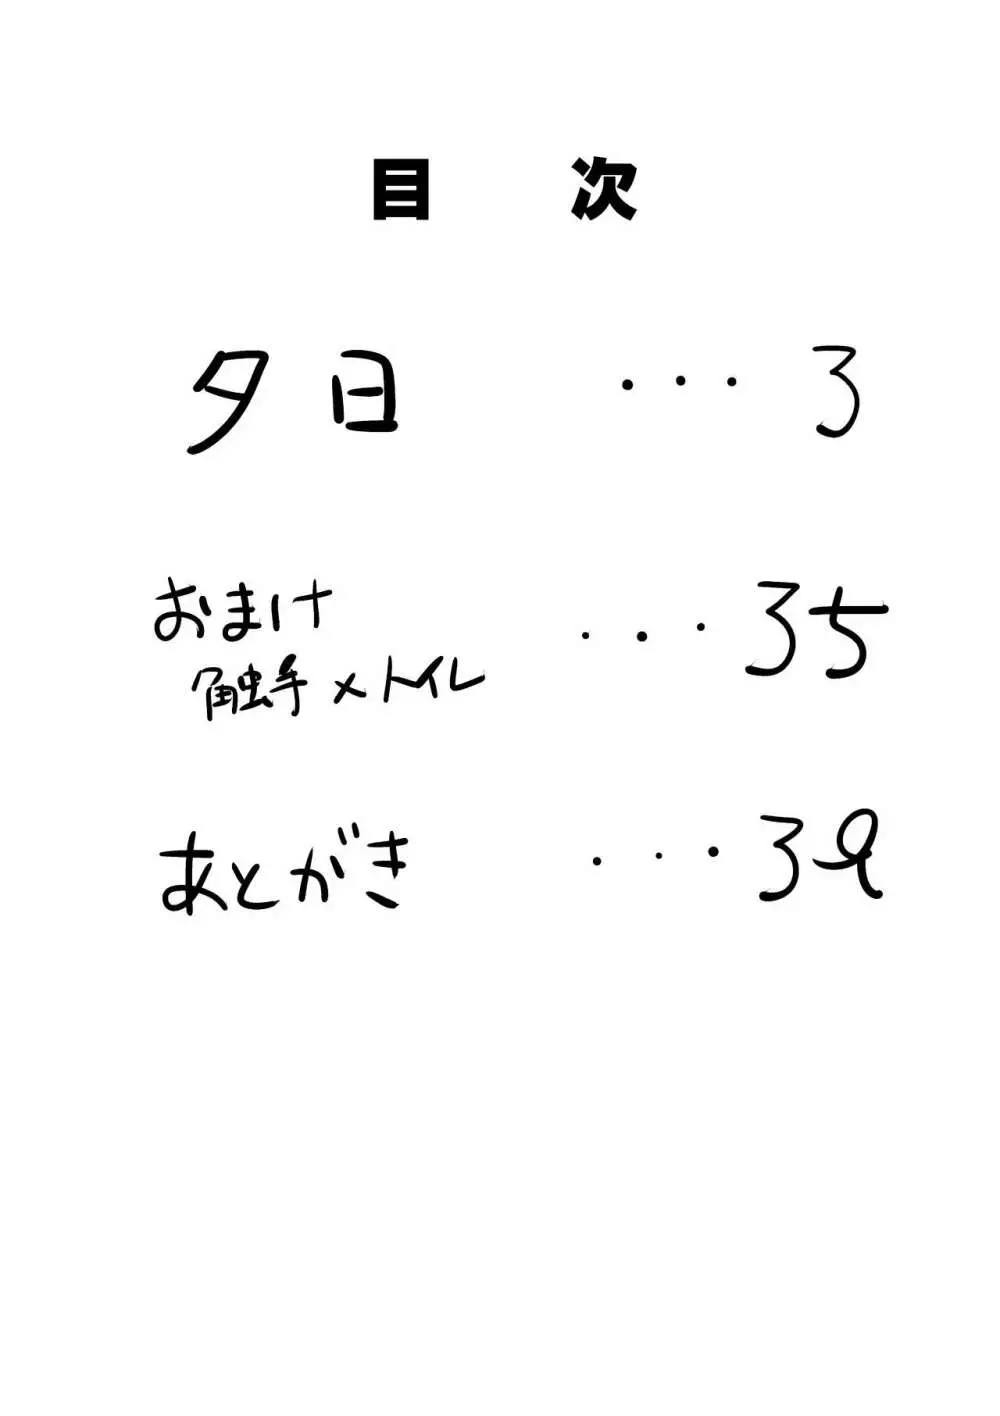 目次
夕日 ・・・3
おまけ ・・・35
触手×トイレ
あとがき ・・・39